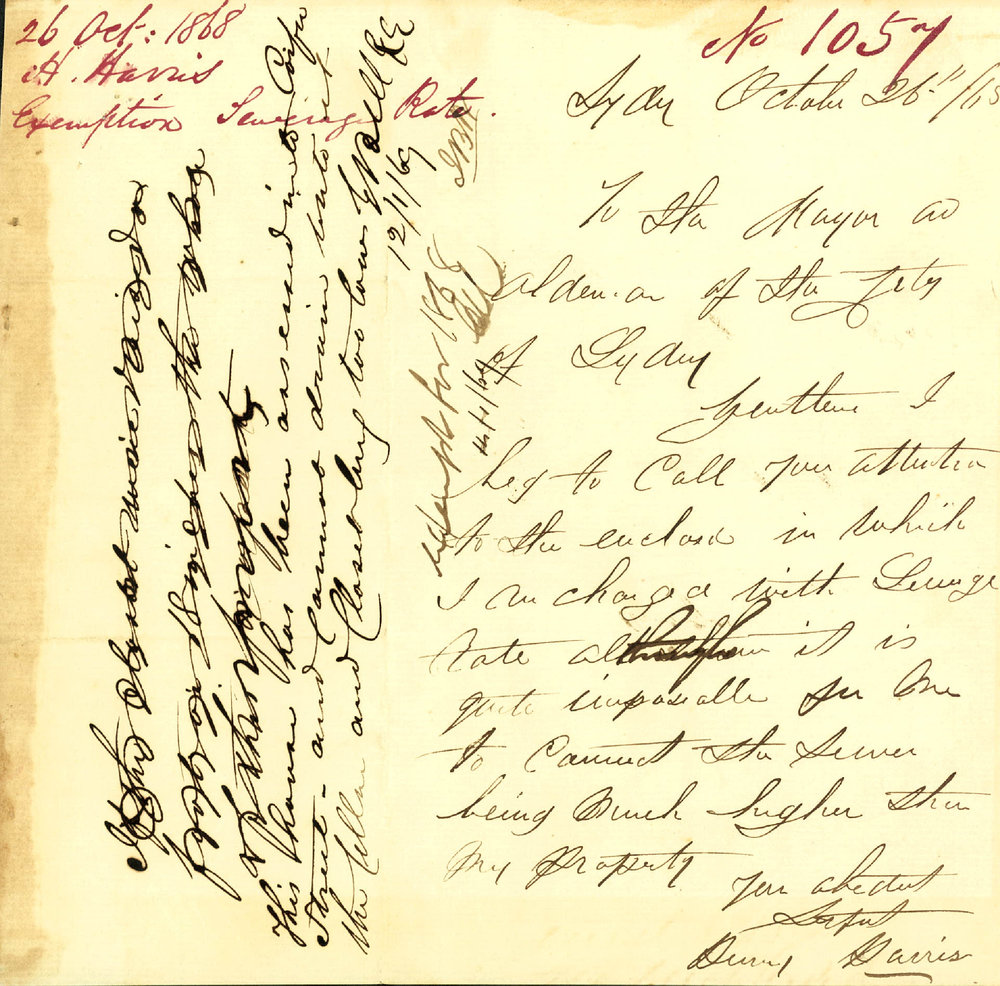 26 Oct: 1868
H. Harris
Exemption Sewerage Rate.
No 1057
Sydny October 26th/68
To the Mayor and
Aldermen of the City
of Sydny
Gentlemen I
beg to Call your attention
to the enclosed in which
I am charged with Sewerage
rate although it is
quite impossible for me
to Connect the Sewer
being Much higher than
My Property
Your obedient
Servant
Henry Harris
If the Closet
for
report
This house has been assessed in to
Street – and Cannot drain into it
the Cellar and Closet being too low
12/1/69
Exempt for
4/1/69